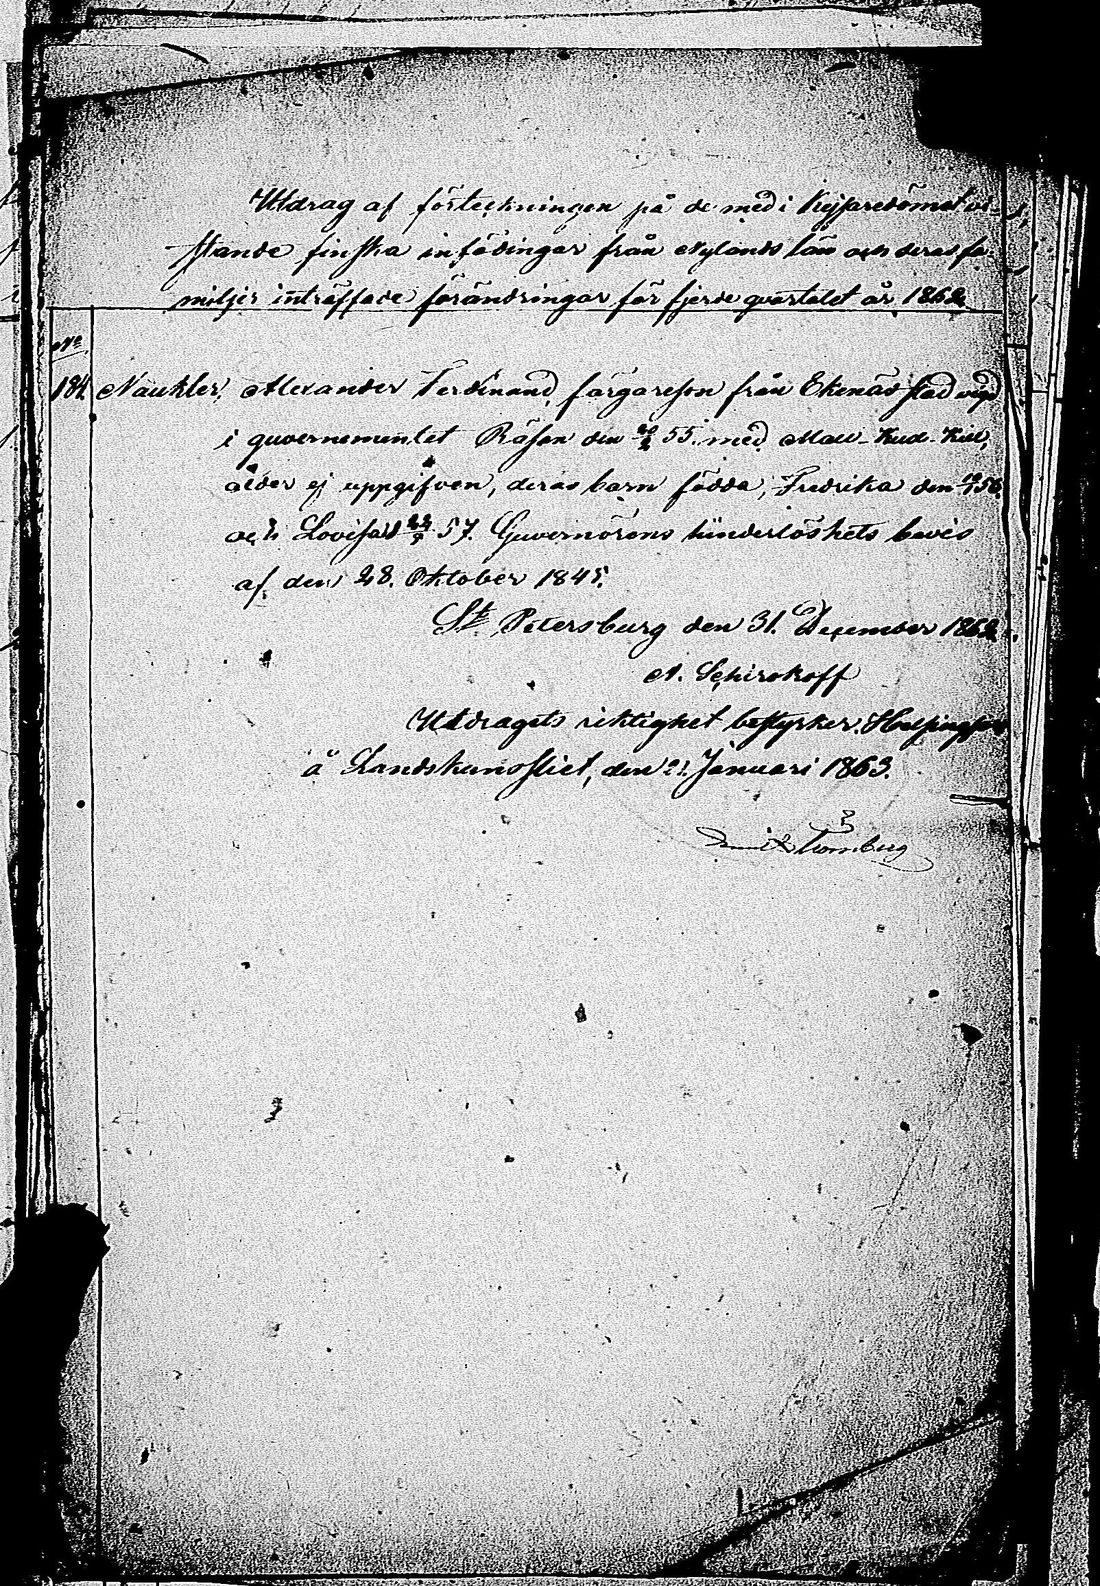 Utdrag af förteckningen på de med i Kejsaredömet vi
stande finska infödingar från Nylands län och deras fa-
miljer inträffade förändringar för fjerde qvartalet år 1862
No
184. Naukler, Alexander Ferdinand, färgareson från Ekenäs stad vigd
i guvernementet Räsan den 55. med
ålder ej uppgifven, deras barn födda, Fredrika den 56
och Lovisa d 57. Guvernörens hinderlöshets bevis
af den 28. Oktober 1845.
St Petersburg den 31. December 1862
A. Schirokoff
Utdragets riktighet bestyrker. Helsingfors
å Landskansliet, den 21. Januari 1863.